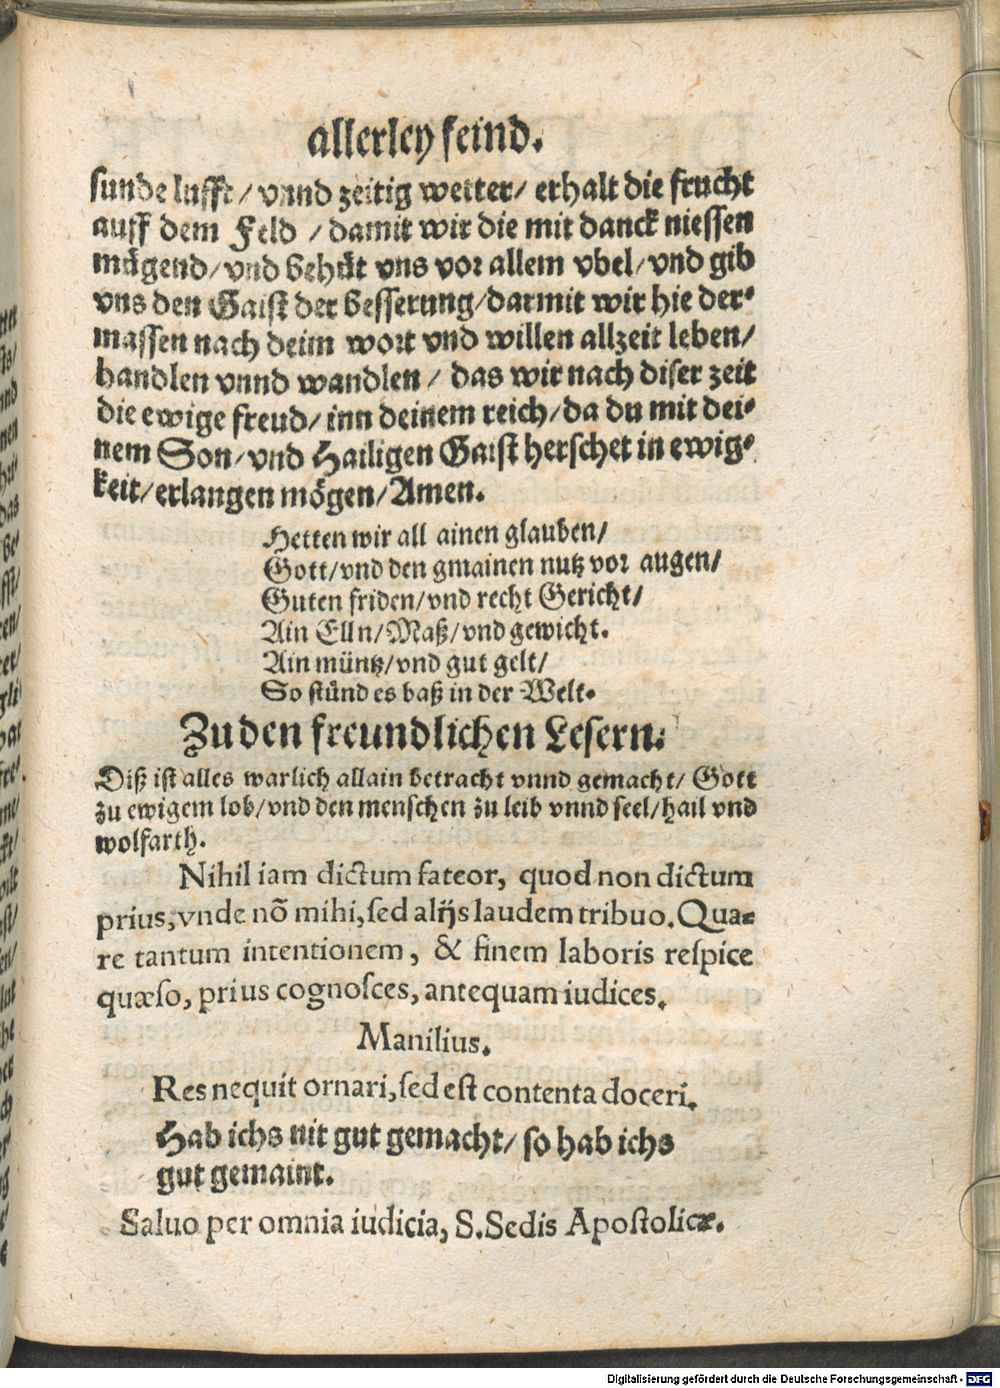 allerley feind.
sunde lufft/ vnnd zeitig wetter/ erhalt die frucht
auff dem Feld / damit wir die mit danck niessen
mügend/vnd behüt vns vor allem vbel/vnd gib
vns den Gaist der besserung/darmit wir hie der-
massen nach deim wort vnd willen allzeit leben/
handlen vnnd wandlen / das wir nach diser zeit
die ewige freud/ inn deinem reich/da du mit dei-
nem Son/vnd Hailigen Gaist herschet in ewig-
keit/erlangen mögen/Amen.
Hetten wir all ainen glauben/
Gott/vnd den gmainen nutz vor augen/
Guten friden/vnd recht Gericht/
Ain Elln/Maß/vnd gewicht.
Ain müntz/vnd gut gelt/
So stünd es baß in der Welt.
Zu den freundlichen Lesern.
Diß ist alles warlich allain betracht vnnd gemacht/ Gott
zu ewigem lob/vnd den menschen zu leib vnnd seel/hail vnd
wolfarth.
Nihil iam dictum fateor, quod non dictum
prius,vnde nõ mihi,sed alijs laudem tribuo.Qua-
re tantum intentionem, & finem laboris respice
quæso, prius cognosces, antequam iudices.
Manilius.
Res nequit ornari,sed est contenta doceri.
Hab ichs nit gut gemacht/ so hab ichs
gut gemaint.
Saluo per omnia iudicia, S.Sedis Apostolicæ.
Digitalisierung gefördert durch die Deutsche Forschungsgemeinschaft - DFG